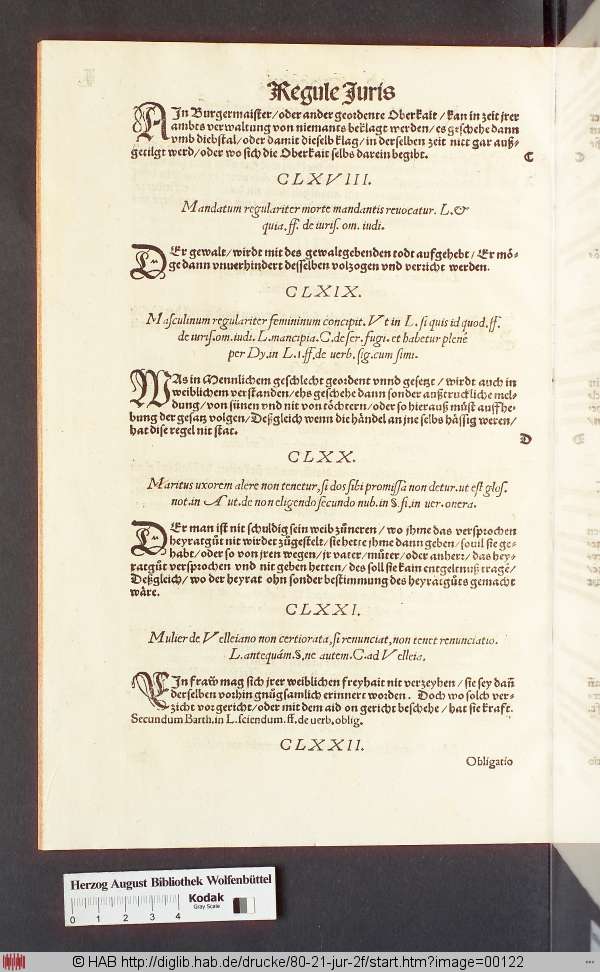 Regule Juris
AJn Burgermaister/oder ander geordente Oberkait/kan in zeit jrer
ambts verwaltung von niemants beklagt werden/es geschehe dann
vmb diebstal/oder damit dieselb klag/in derselben zeit nitt gar auß-
getilgt werd/oder wo sich die Oberkait selbs darein begibt.
C
CLXVIII.
Mandatum regulariter morte mandantis reuocatur. L. &
quia. ff. de iuris. om. iudi.
DEr gewalt/wirdt mit des gewaltgebenden todt aufgehebt/Er mö-
ge dann vnuerhindert desselben volzogen vnd verricht werden.
CLXIX.
Masculinum regulariter femininum concipit. Vt in L. si quis id quod. ff.
de iuris. om. iudi. L. mancipia. C. de ser. fugi. et habetur plenè
per Dy. in L. 1. ff. de verb. sig. cum simi.
WAs in Mennlichem geschlecht geordent vnnd gesetzt/wirdt auch in
weiblichem verstanden/ehs geschehe dann sonder außtruckliche mel-
dung/von sünen vnd nit von töchtern/oder so hierauß müst auffhe-
bung der gesatz volgen/Deßgleich wenn die händel an jne selbs hässig weren/
hat dise regel nit stat.
D
CLXX.
Maritus vxorem alere non tenetur, si dos sibi promissa non detur. ut est glos.
not. in Aut. de non eligendo secundo nub. in §. fi. in uer. onera.
DEr man ist nit schuldig sein weib züneren/wo jhme das versprochen
heyratgüt nit wirdet zügestelt/sie hette jhme dann geben/souil sie ge-
habt/oder so von jren wegen/jr vater/müter/oder anherr/das hey-
ratgüt versprochen vnd nit geben hetten/des soll sie kain entgeltnuß tragē/
Deßgleich/wo der heyrat ohn sonder bestimmung des heyratgüts gemacht
wäre.
CLXXI.
Mulier de Velleiano non certiorata, si renunciat, non tenet renunciatio.
L. antequám. §. ne autem. C. ad Velleia.
EJn fraw mag sich jrer weiblichen freyhait nit verzeyhen/sie sey dañ
derselben vorhin gnügsamlich erinnert worden. Doch wo solch ver-
zicht vor gericht/oder mit dem aid on gericht beschehe/hat sie kraft.
Secundum Barth. in L. sciendum. ff. de uerb. oblig.
CLXXII.
Obligatio
Herzog August Bibliothek Wolfenbüttel
Kodak
Gray Scale
0 1 2 3 4
© HAB http://diglib.hab.de/drucke/80-21-jur-2f/start.htm?image=00122